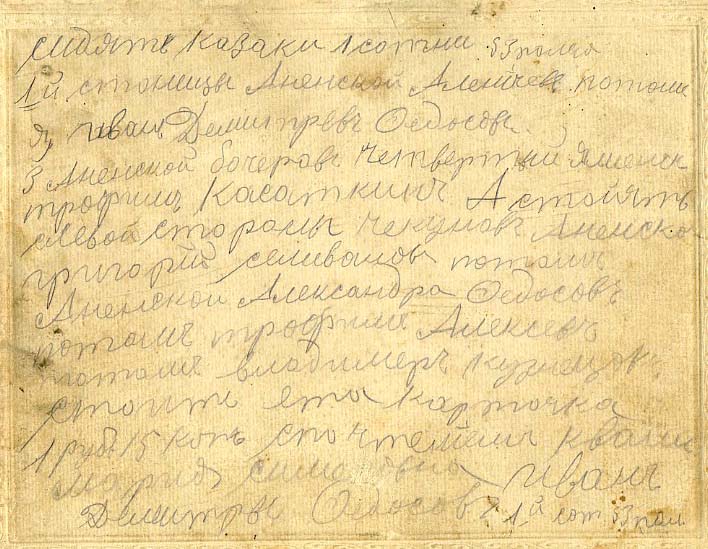 сидять казаки 1 сотни 53 полка
1й станицы Аненской Алекчевъ потомъ
я, иванъ Демитревъ Федосовъ
3 Аненской бочеровъ четвертый я
трофимъ Касаткинъ А стоять
слевой стороны чекуновъ Аненско
григорий селивановъ потомъ
Аненской Александра Федосовъ
потомъ трофимъ Алексевъ
потомъ владимеръ кузнецовъ
стоить ета карточка
1 руб 15 копъ спочтемемъ квамъ
мария симеловна иванъ
Демитрвъ Федосовъ 1й сот 53 пол.